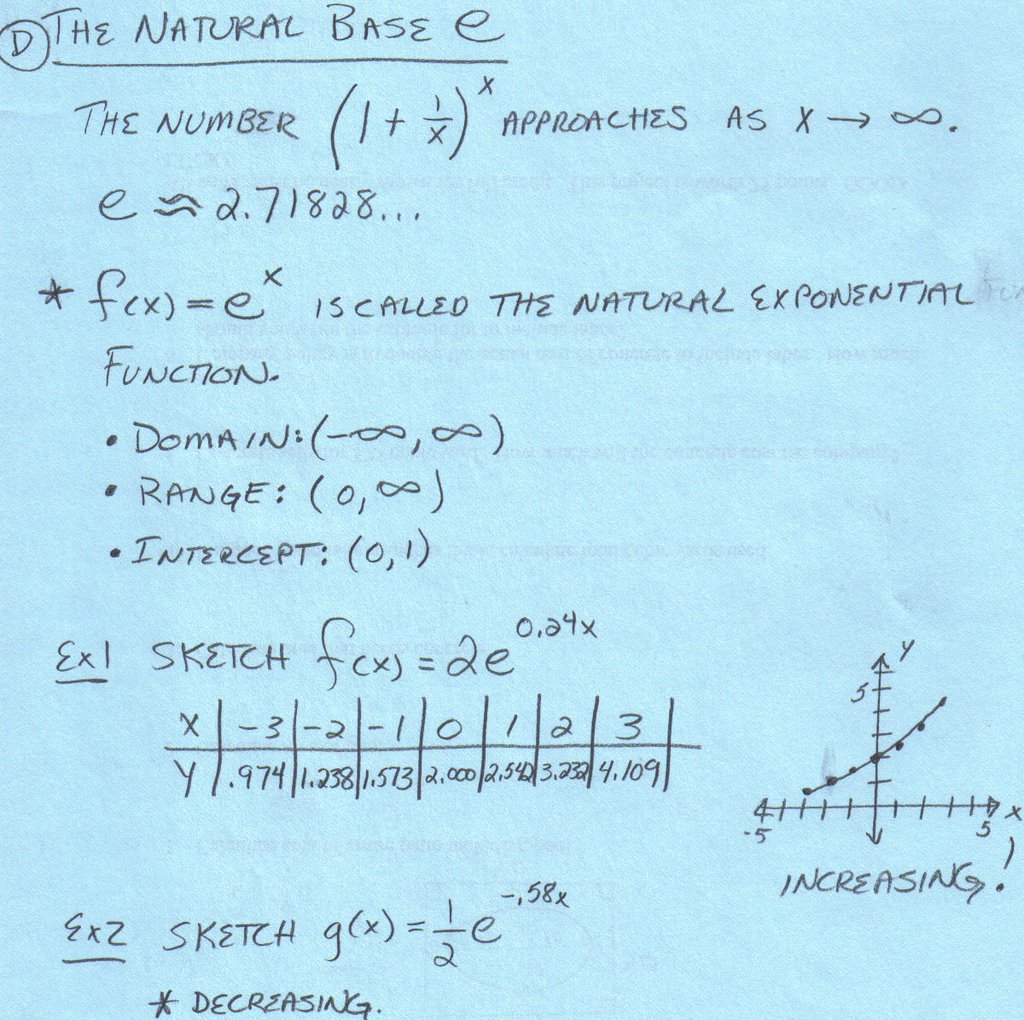 D THE NATURAL BASE e
THE NUMBER (1 + 1/x)^x APPROACHES AS X → ∞.
e ≈ 2.71828...
* f(x) = e^x IS CALLED THE NATURAL EXPONENTIAL
FUNCTION.
• DOMAIN: (-∞, ∞)
• RANGE: (0, ∞)
• INTERCEPT: (0,1)
Ex1 SKETCH f(x) = 2e^0.24x
X | -3 | -2 | -1 | 0 | 1 | 2 | 3 |
Y | .974 | 1.238 | 1.573 | 2.000 | 2.542 | 3.232 | 4.109 |
Y
5
X
-5 5
INCREASING!
Ex2 SKETCH g(x) = 1/2 e^-.58x
* DECREASING.